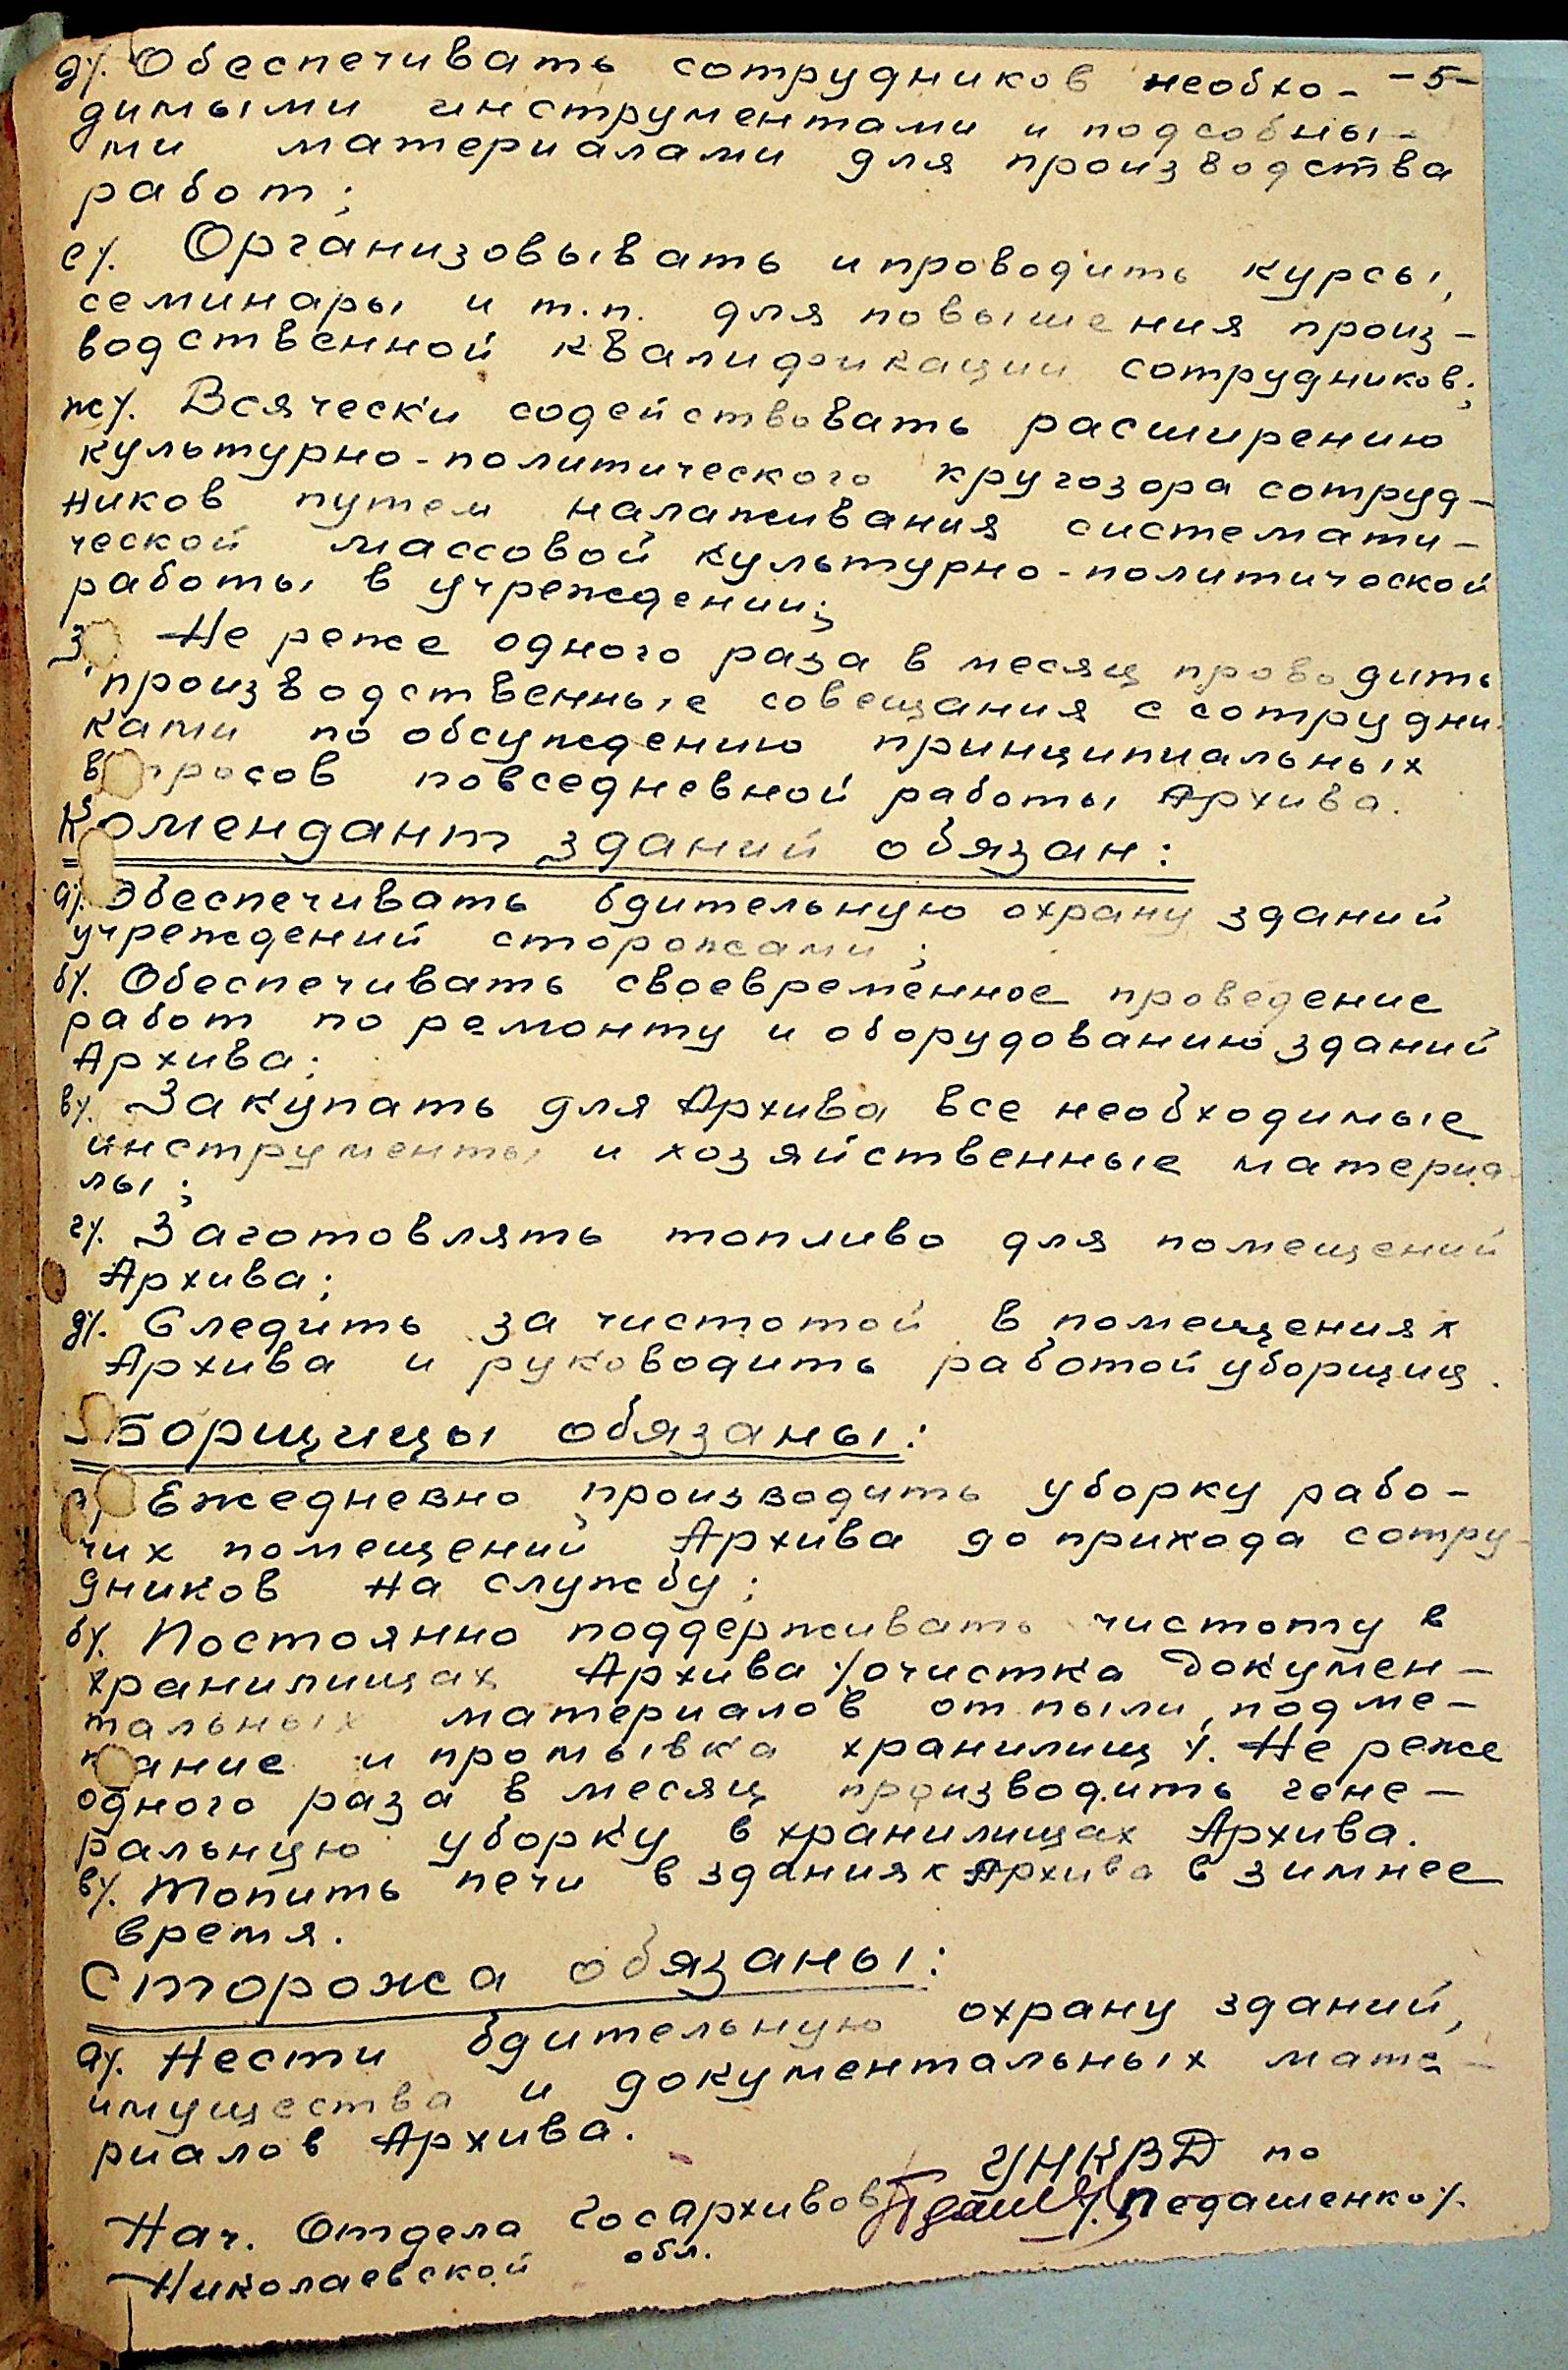 д/. Обеспечивать сотрудников необхо- -5-
димыми инструментами и подсобны-
ми материалами для производства
работ;
е/. Организовывать и проводить курсы,
семинары и т.п. для повышения произ-
водственной квалификации сотрудников;
ж/. Всячески содействовать расширению
культурно-политического кругозора сотруд-
ников путем налаживания системати-
ческой массовой культурно-политической
работы в учреждении;
З Не реже одного раза в месяц проводить
производственные совещания с сотрудни-
ками по обсуждению принципиальных
вопросов повседневной работы Архива.
Комендант зданий обязан:
а/. Обеспечивать бдительную охрану зданий
учреждений сторожами;
б/. Обеспечивать своевременное проведение
работ по ремонту и оборудованию зданий
Архива;
в/. Закупать для Архива все необходимые
инструменты и хозяйственные материа
лы;
г/. Заготовлять топливо для помещений
Архива;
д/. Следить за чистотой в помещениях
Архива и руководить работой уборщиц.
Уборщицы обязаны:
а/ Ежедневно производить уборку рабо-
чих помещений Архива до прихода сотру-
дников на службу;
б/. Постоянно поддерживать чистоту в
хранилищах Архива /очистка докумен-
тальных материалов от пыли, подме-
тание и промывка хранилищ/. Не реже
одного раза в месяц производить гене-
ральную уборку в хранилищах Архива.
в/. Топить печи в зданиях Архива в зимнее
время.
Сторожа обязаны:
а/. Нести бдительную охрану зданий,
имущества и документальных мате-
риалов Архива.
Нач. Отдела Госархивов УНКВД по
Николаевской обл. /. Педашенко/.